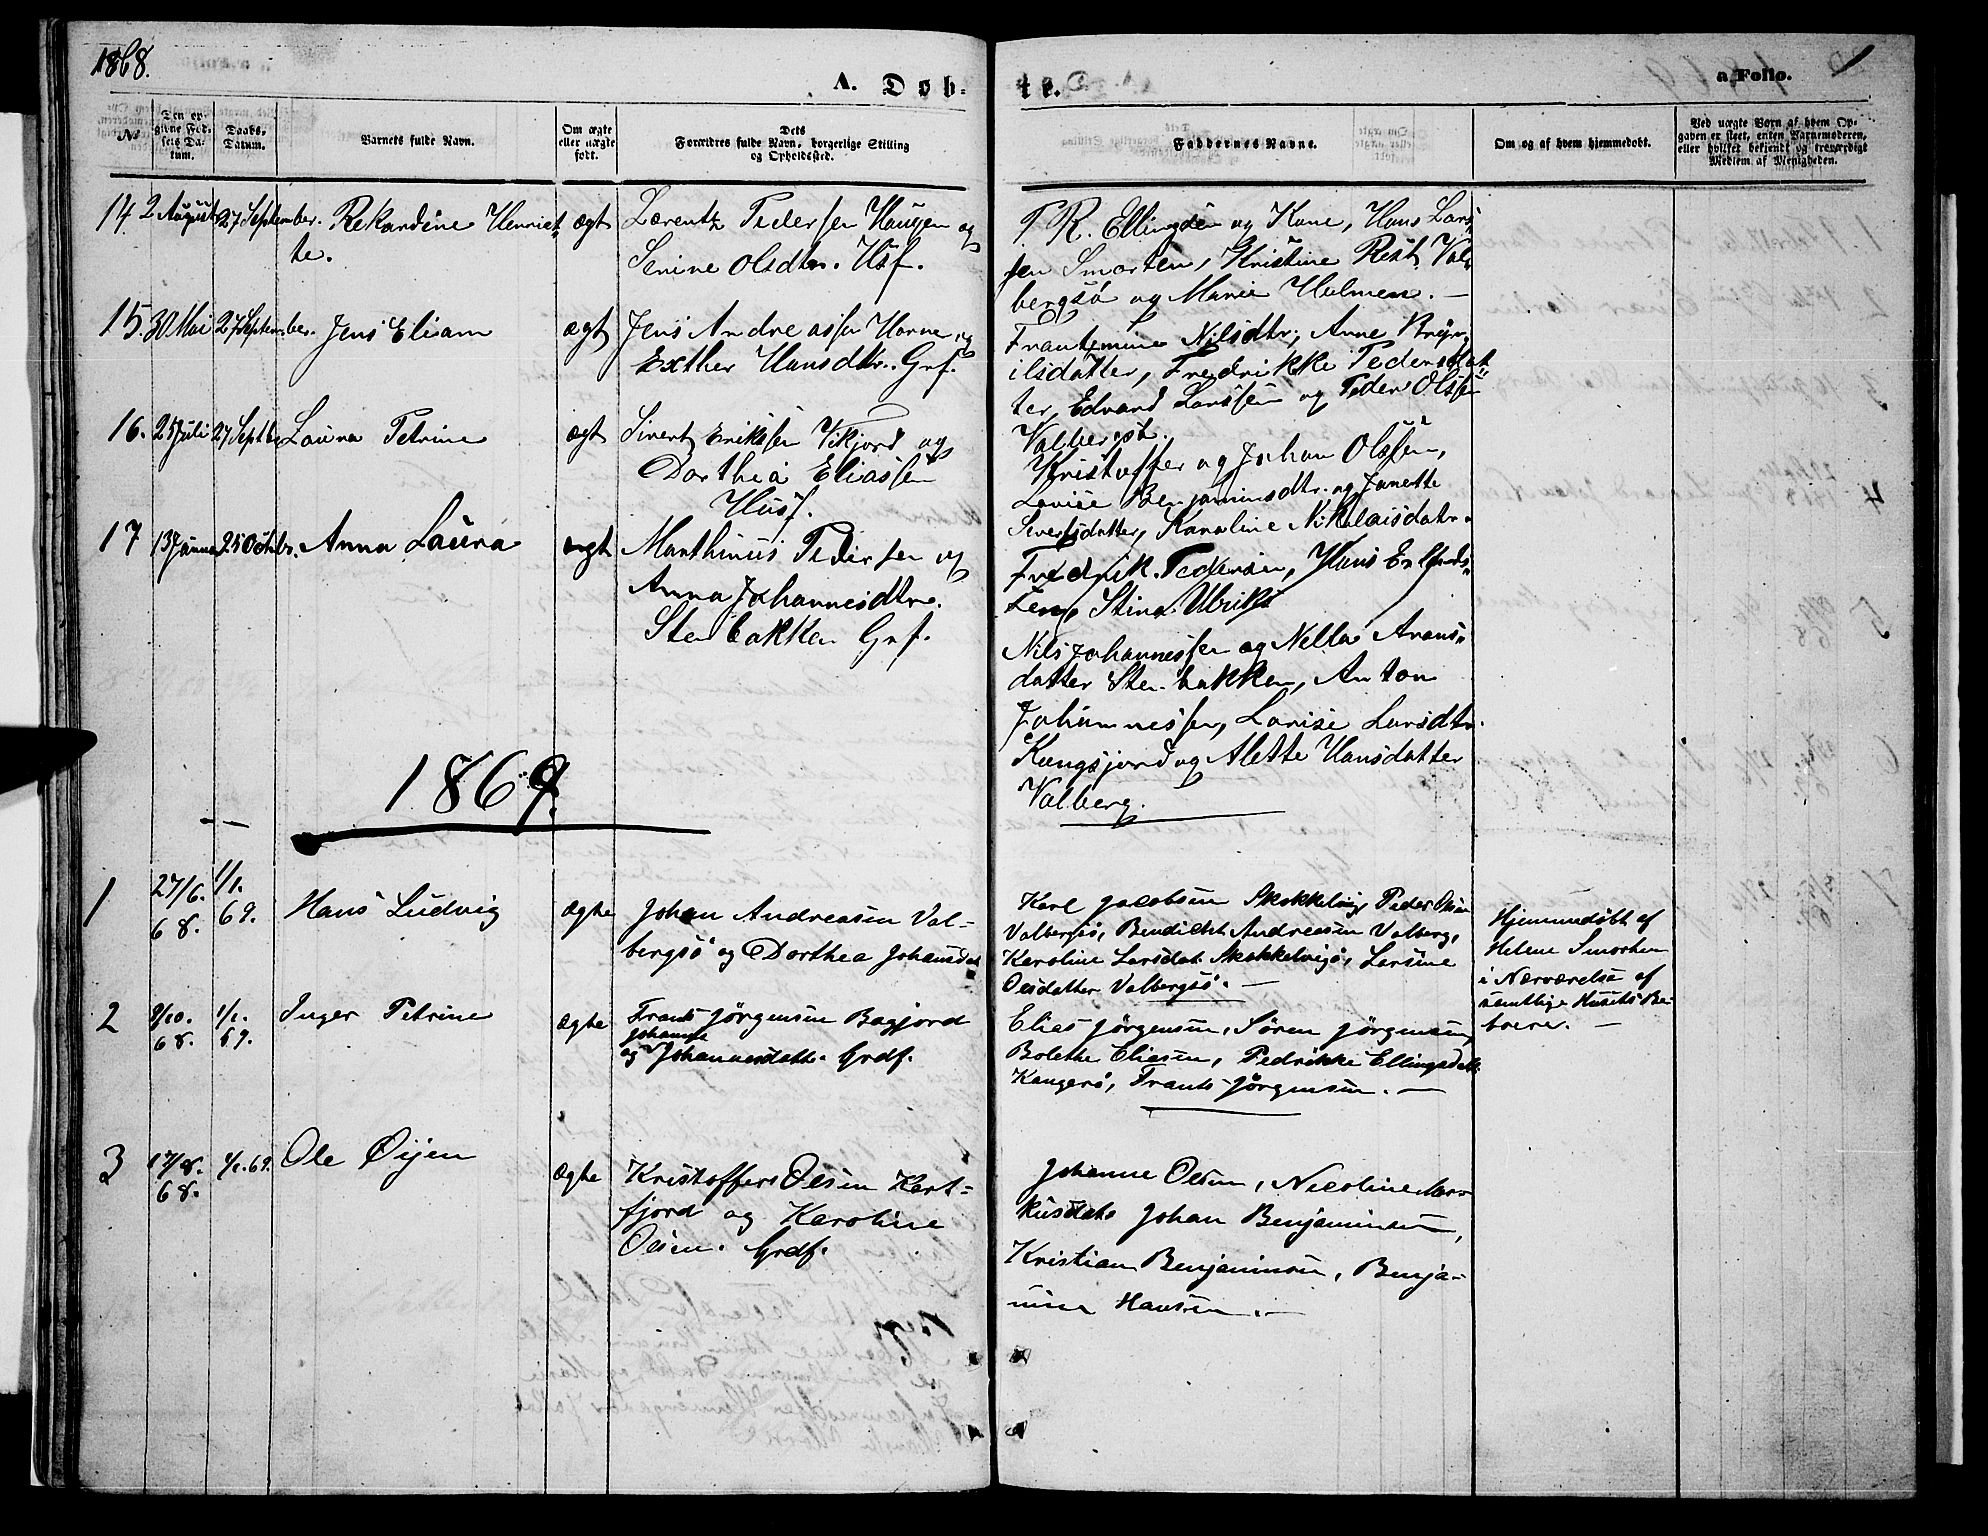 1868.
A. Døb-
te.
a. Folio.
1
No
Den opgivne Fødsels Datum.
Daabs-Datum.
Barnets fulde Navn.
Om ægte eller uægte født.
Dets Forældres fulde Navn, borgerlige Stilling og Opholdssted.
Faddernes Navne.
Om og af hvem hjemmedøbt.
Ved uægte Børn af hvem Opgaven er skeet, enten Barnemoderen, eller hvilket bekjendt og troværdigt Medlem af Menigheden.
14. 2 August 27 September. Rekardine Henriet-
te.
ægt
Lorentz Pedersen Haugen og
Serine Olsdtr. Husf.
P R. Ellingsen og Kone, Hans Lars-
sen Smorten, Kristine Rist Val-
bergsö og Marie Holmen. —
15. 30 Mai 27 September. Jens Eliam
ægt
Jens Andreassen Horne og
Exther Hansdtr. Grf.
Frantzmine Nilsdtr, Anne Bryn-
ilsdatter, Fredrikke Pedersdat-
ter, Edvard Larssen og Peder Olssen
Valbergsö.
16. 25 Juli 27 Septbr Laura Petrine
ægt
Sivert Erikssen Vikjord og
Dorthea Eliassen
Husf.
Kristoffer og Johan Olssen,
Lovise Benjaminsdtr. og Janette
Sivertsdatter, Karoline Nikolaisdatr.
17 13 Janua 25 Octbr. Anna Laura
ægt
Marthinus Pedersen og
Anna Johannesdtr.
Stenbakken Grf.
Fredrik Pedersen, Hans
Stina Ulriks
Nils Johannessen og Nella Arons-
datter Stenbakken, Anton
Johannessen, Lovise Larsdtr.
Kongsjord og Alette Hansdatter
Valberg.
1869.
1
27/6. 68.
1/1. 69.
Hans Ludvig
ægte
Johan Andreasen Val-
bergsö og Dorthea Johansdat
Karl Jacobsen Skokkelvig, Peder Olsen
Valbergsö, Bendikt Andreasen Valberg,
Karoline Larsdat. Skokkelvigö, Larsine
Olsdatter Valbergsö. —
Hjemmedöbt af
Helene Smorten
i Nærværelse af
samtlige Husets Be-
boere. —
2
9/10. 68.
1/1. 69.
Inger Petrine
ægte
Frants Jörgensen Bagjord
og Johanne Johannesdatt. Grdf.
Elias Jörgensen, Sören Jörgensen,
Bolette Eliesen, Pedrikke Ellingsdatt.
Kangerö, Frants Jörgensen. —
3
17/8. 68.
1/1. 69.
Ole Öijen
ægte
Kristoffer Olsen Kart-
fjord og Karoline
Olsen. Grdf.
Johanne Olsen, Nicoline Mar-
kusdat. Johan Benjaminsen,
Kristian Benjaminsen, Benja-
mine Hansen. —